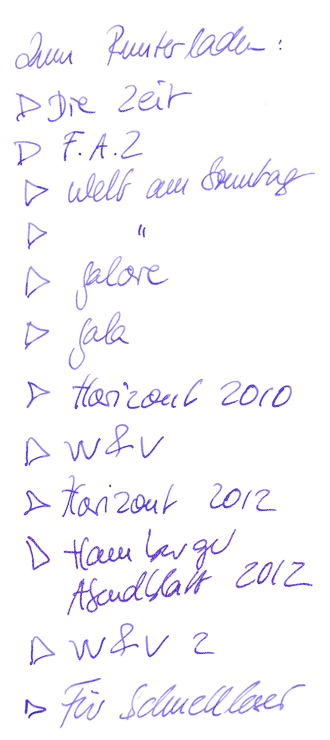 Zum Runterladen:
▷ Die Zeit
▷ F.A.Z
▷ Welt am Sonntag
▷ "
▷ Galore
▷ Gala
▷ Horizont 2010
▷ W&V
▷ Horizont 2012
▷ Hamburger
Abendblatt 2012
▷ W&V 2
▷ Für Schnellleser